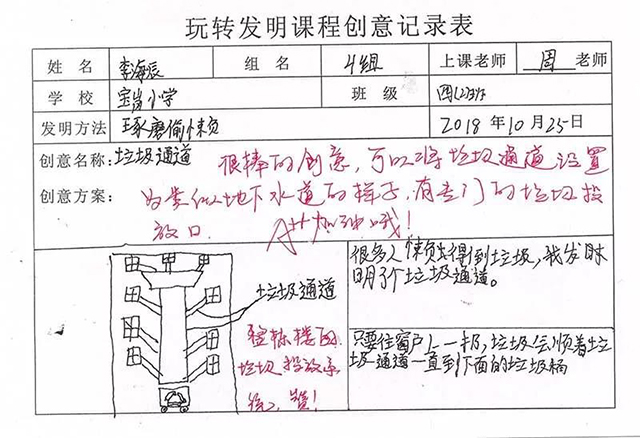 玩转发明课程创意记录表
姓 名 李海辰 组 名 4组 上课老师 周 老师
学 校 宝岗小学 班 级 四(2)班
发明方法 琢磨偷懒员 2018 年 10 月 25 日
创意名称: 垃圾通道
很棒的创意,可以将垃圾通道设置
创意方案:
为类似地下水道的样子,有专门的垃圾投
放口. A++加油哦!
很多人懒员去得到垃圾,我发
明了个垃圾通道。
垃圾通道
整栋楼的
垃圾投放系
统,赞!
只要往窗户上一扔,垃圾会顺着垃
圾通道一直到下面的垃圾桶